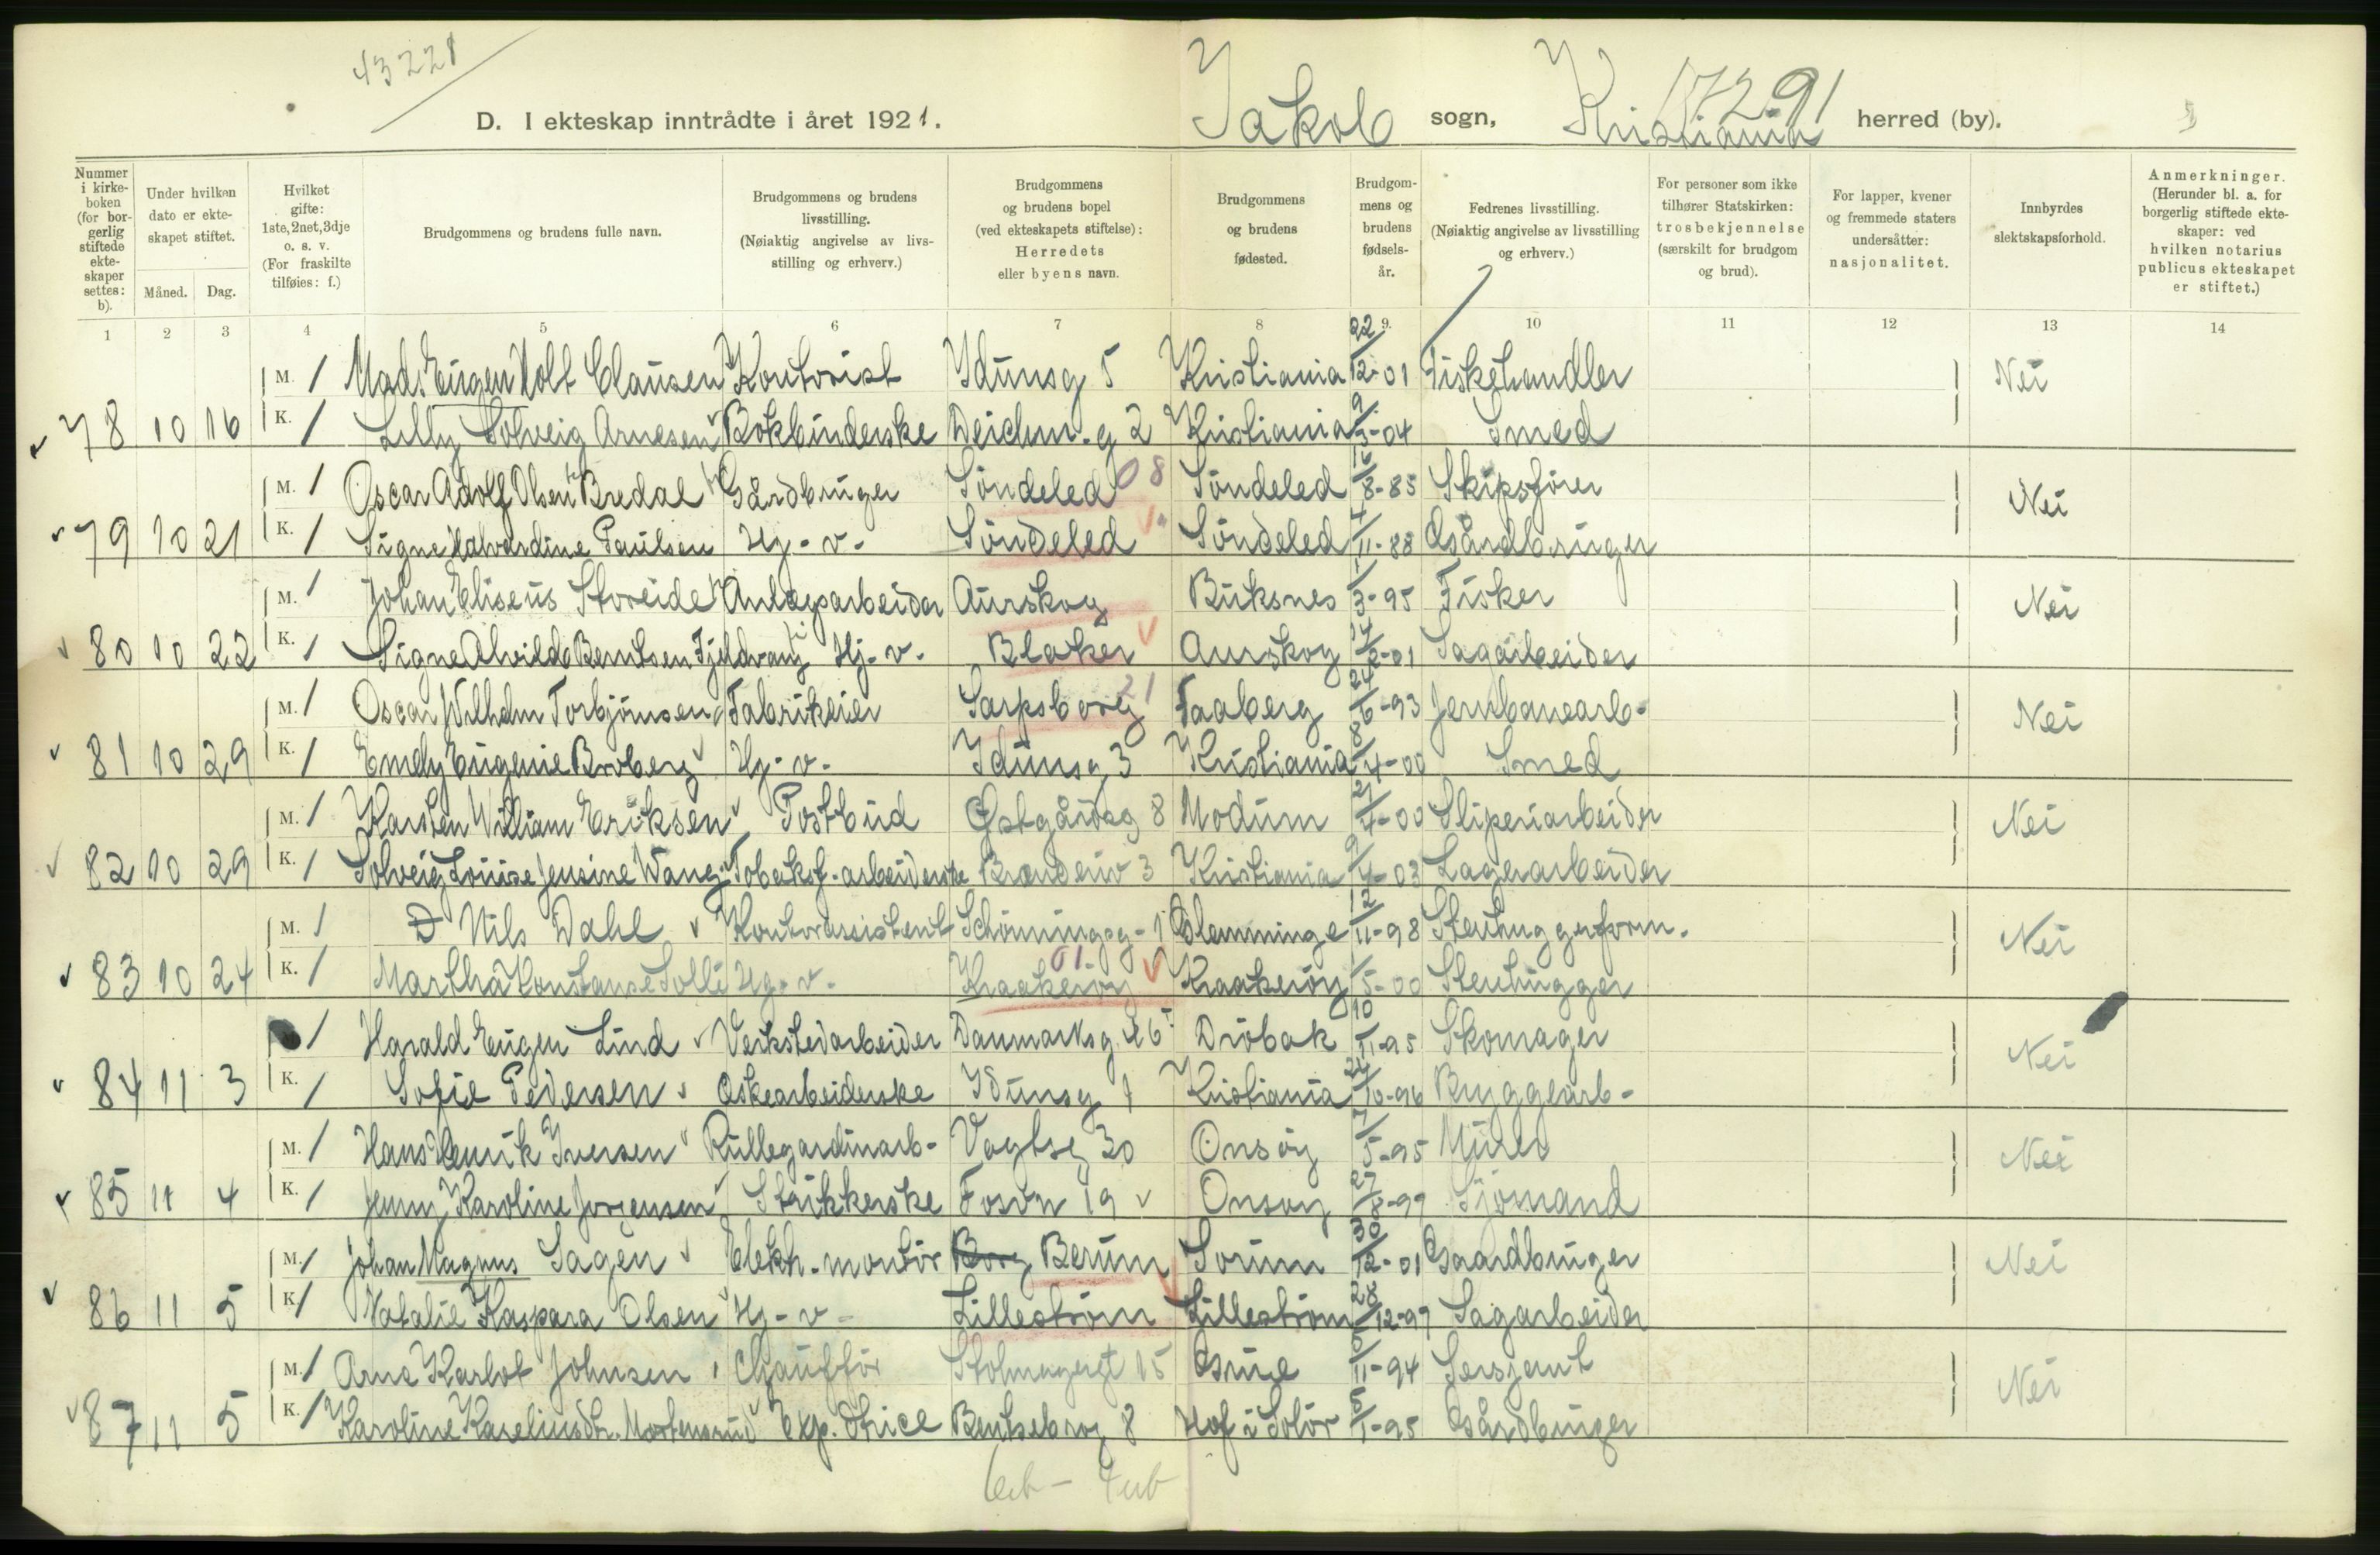 43221
D. I ekteskap inntrådte i året 1921. Jakob sogn, Kristiania herred (by).
17291
Nummer i kirkeboken (for borgerlig stiftede ekteskaper settes: b).
Under hvilken dato er ekteskapet stiftet.
Måned. Dag.
Hvilket gifte: 1ste, 2net, 3dje o. s. v. (For fraskilte tilføies: f.)
Brudgommens og brudens fulle navn.
Brudgommens og brudens livsstilling. (Nøiaktig angivelse av livsstilling og erhverv.)
Brudgommens og brudens bopel (ved ekteskapets stiftelse): Herredets eller byens navn.
Brudgommens og brudens fødested.
Brudgommens og brudens fødselsår.
Fedrenes livsstilling. (Nøiaktig angivelse av livsstilling og erhverv.)
For personer som ikke tilhører Statskirken: trosbekjennelse (særskilt for brudgom og brud).
For lapper, kvener og fremmede staters undersåtter: nasjonalitet.
Innbyrdes slektskapsforhold.
Anmerkninger. (Herunder bl. a. for borgerlig stiftede ekteskaper: ved hvilken notarius publicus ekteskapet er stiftet.)
1 2 3 4 5 6 7 8 9. 10 11 12 13 14
M. 1 Mads Eugen Holt Clausen Kontorist Idunsg 5 Kristiania 22/12-01 Fiskehandler Nei
78 10 16 K. 1 Lilly Solveig Arnesen Bokbinderske Deichm.g 2 Kristiania 9/3-04 Smed
M. 1 Oscar Adolf Olsen Bredal Gårdbruger Søndeled 08 Søndeled 16/8-85 Skipsfører Nei
79 10 21 K. 1 Signe Halvardine Paulsen Hj-v- Søndeled Søndeled 4/11-88 Gårdbruger
M. 1 Johan Eliseus Storeide Anlegsarbeider Aurskog Buksnes 1/3-95 Fisker Nei
80 10 22 K. 1 Signe Alvilde Berntsen Fjeldvang Hj-v. Blaker Aurskog 14/2-01 Sagarbeider
M. 1 Oscar Wilhelm Torbjørnsen Fabrikeier Sarpsborg 21 Faaberg 24/6-93 Jernbanearb- Nei
81 10 29 K. 1 Emely Eugenie Broberg Hj-v- Idunsg 3 Kristiania 8/4-00 Smed
M. 1 Karsten William Eriksen Postbud Østgårdsg 8 Modum 21/4-00 Sliperiarbeider Nei
82 10 29 K. 1 Solveig Louise Jensine Wang Tobaksf.arbeiderske Brænneriv 3 Kristiania 9/4-03 Lagerarbeider
M. 1 Nils Dahl Kontorassistent Schønningsg-1 Glemminge 12/11-98 Stenhuggerform. Nei
83 10 24 K. 1 Martha Konstanse Solli Hj-v. Kraakerøy 01 Kraakerøy 1/5-00 Stenhugger
1 Harald Eugen Lind Verkstedarbeider Danmarksg 46 Drøbak 10/11-95 Skomager Nei
84 11 3 K. 1 Sofie Pedersen Eskearbeiderske Idunsg 1 Kristiania 22/10-96 Bryggearb-
M. 1 Hans Henrik Iversen Rullegardinarb- Vogtsg 30 Onsøy 7/5-95 Murer Nei
85 11 4 K. 1 Jenny Karoline Jørgensen Strikkerske Fosvn 19 Onsøy 27/8-97 Sjømand
M. 1 Johan Magnus Sagen Elektr.montør Borg Berum Sørum 30/12-01 Gaardbruger Nei
86 11 5 K. 1 Natalie Kaspara Olsen Hj-v- Lillestrøm Lillestrøm 28/12-97 Sagarbeider
M. 1 Arne Karlot Johnsen Chauffør Stolmagergt 15 Grue 6/11-94 Sersjant Nei
87 11 5 K. 1 Karoline Kareliusdtr. Mortensrud Exp.trice Bentsebrog 8 Hof i Solør 5/1-95 Gårdbruger